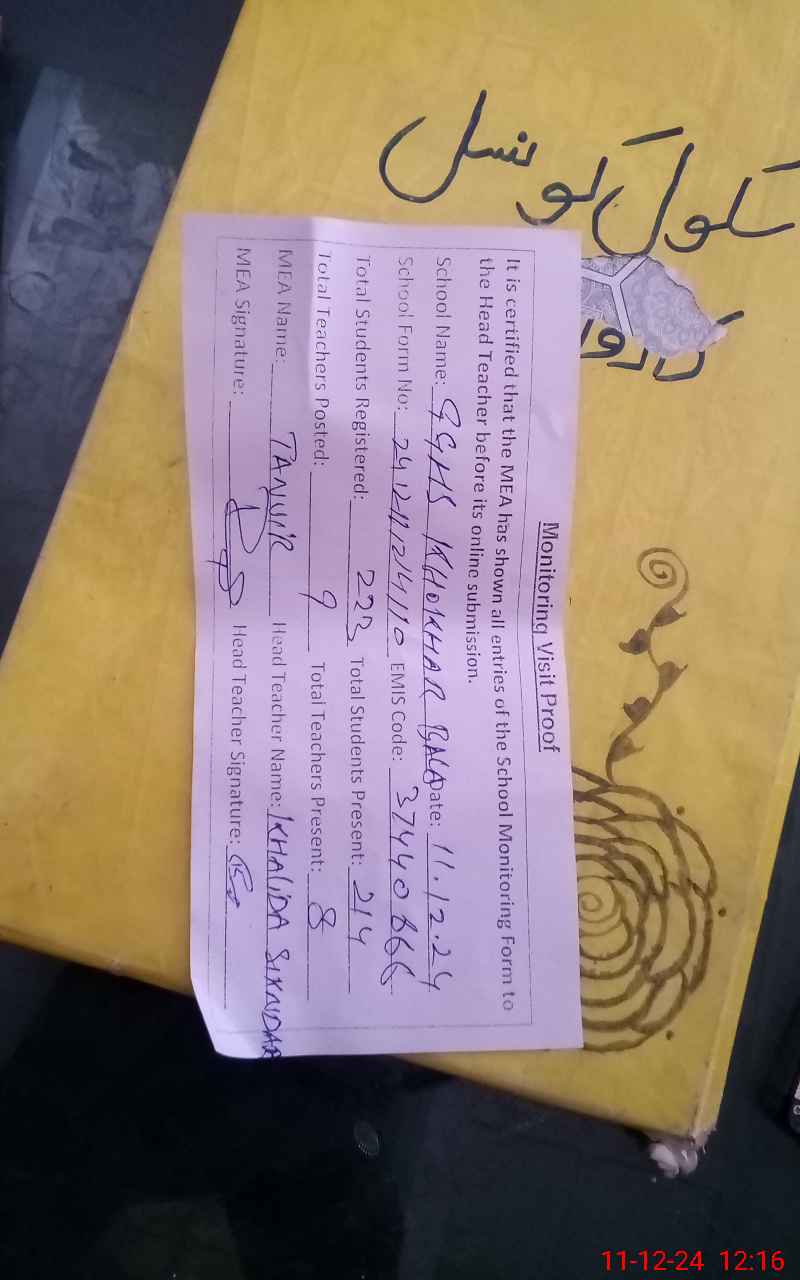 سکول کونسل
Monitoring Visit Proof
It is certified that the MEA has shown all entries of the School Monitoring Form to
the Head Teacher before its online submission.
School Name: GGHS KHOKHAR BALA Date: 11.12.24
School Form No: EMIS Code:
Total Students Registered: 223 Total Students Present: 214
Total Teachers Posted: 9 Total Teachers Present: 8
MEA Name: TANVIR Head Teacher Name: KHALIDA SIKNDAR
MEA Signature: Head Teacher Signature:
11-12-24 12:16